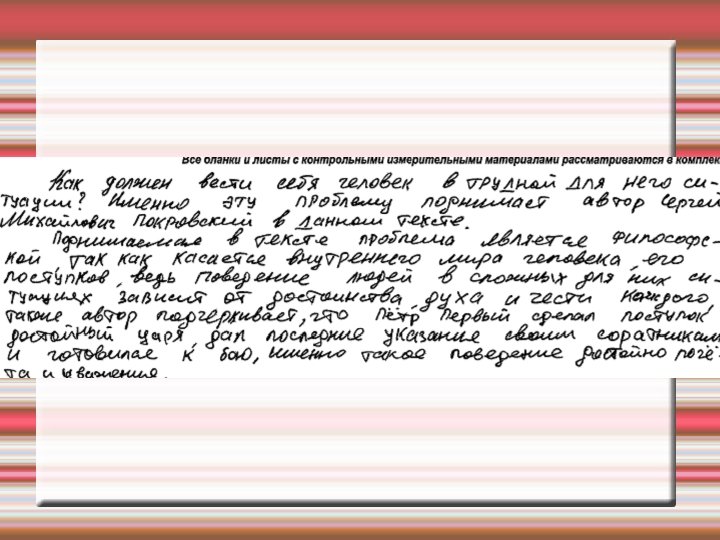 Все бланки и листы с контрольными измерительными материалами рассматриваются в комплек
Как должен вести себя человек в трудной для него си-
туации? Именно эту проблему поднимает автор Сергей
Михайлович Покровский в данном тексте.
Поднимаемая в тексте проблема является философс-
кой так как касается внутреннего мира человека, его
поступков, ведь поведение людей в сложных для них си-
туациях зависит от достоинства, духа и чести каждого,
также автор подчеркивает, что Пётр Первый сделал поступок
достойный царя, дал последние указание своим соратникам
и готовился к бою, именно такое поведение достойно почё-
та и уважения.